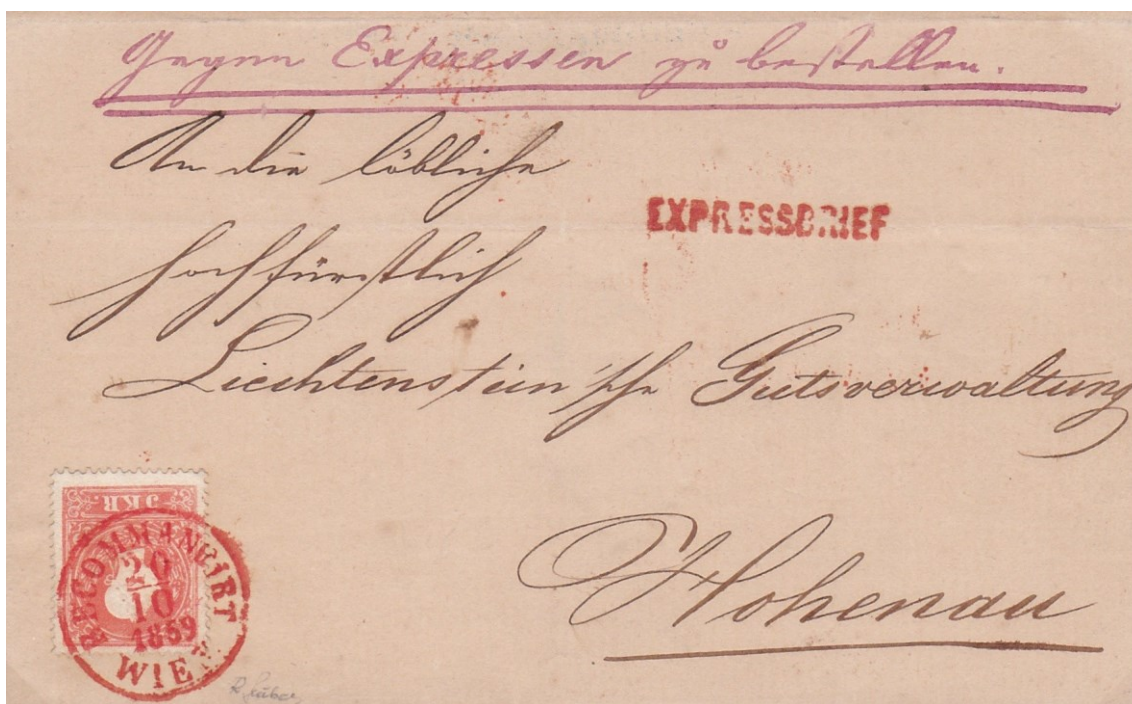 Gegen Expressen zu bestellen.
An die löbliche
EXPRESSBRIEF
hochfürstlich
Liechtenstein'sche Gutsverwaltung
5 KR
RECOMMANDIRT
20
10
1859
WIEN
Hohenau